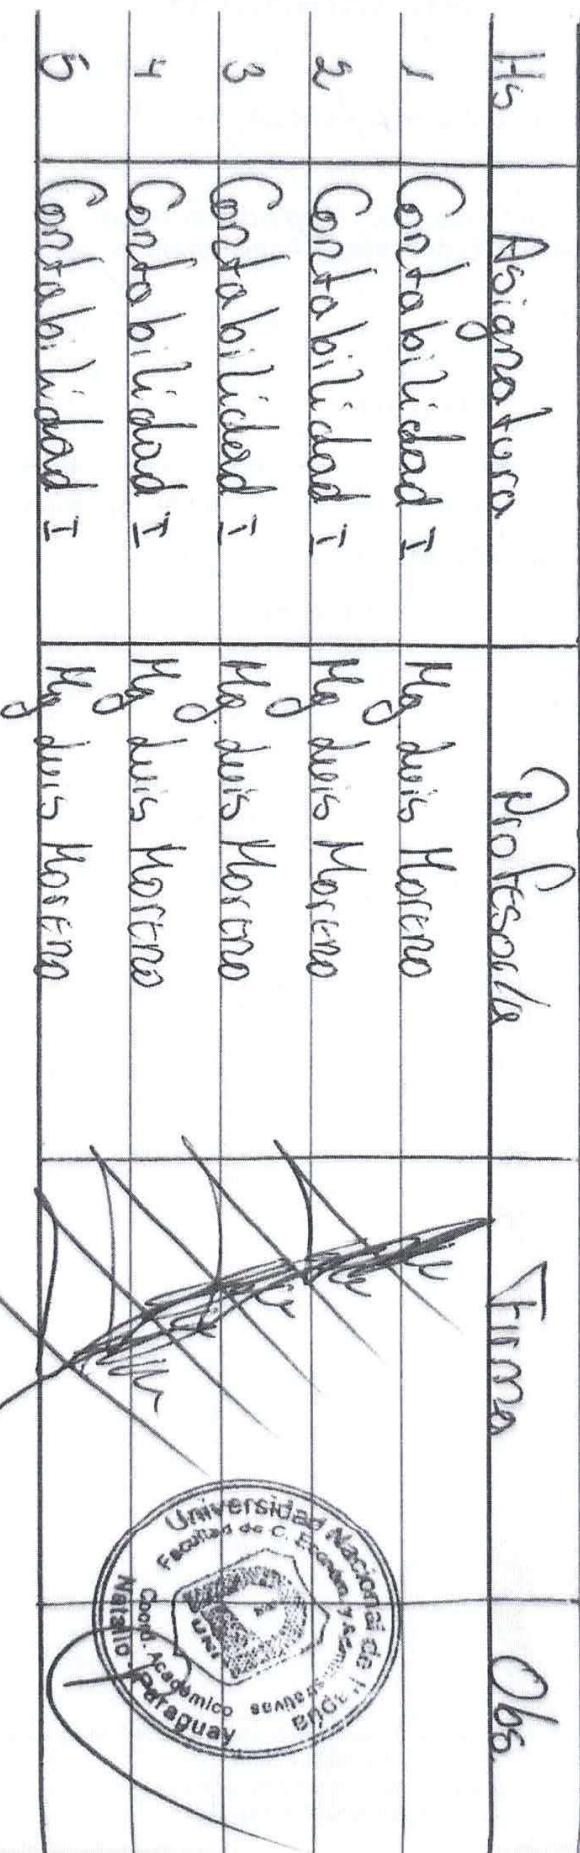 Hs Asignatura Profesor/a Firma Obs.
1 Contabilidad I Mg Luis Moreno
2 Contabilidad I Mg Luis Moreno
3 Contabilidad I Mg. Luis Moreno
4 Contabilidad I Mg Luis Moreno
5 Contabilidad I Mg Luis Moreno
Universidad Nacional de
Facultad de C.
Coord. Académico
Natalio - Paraguay
UNI